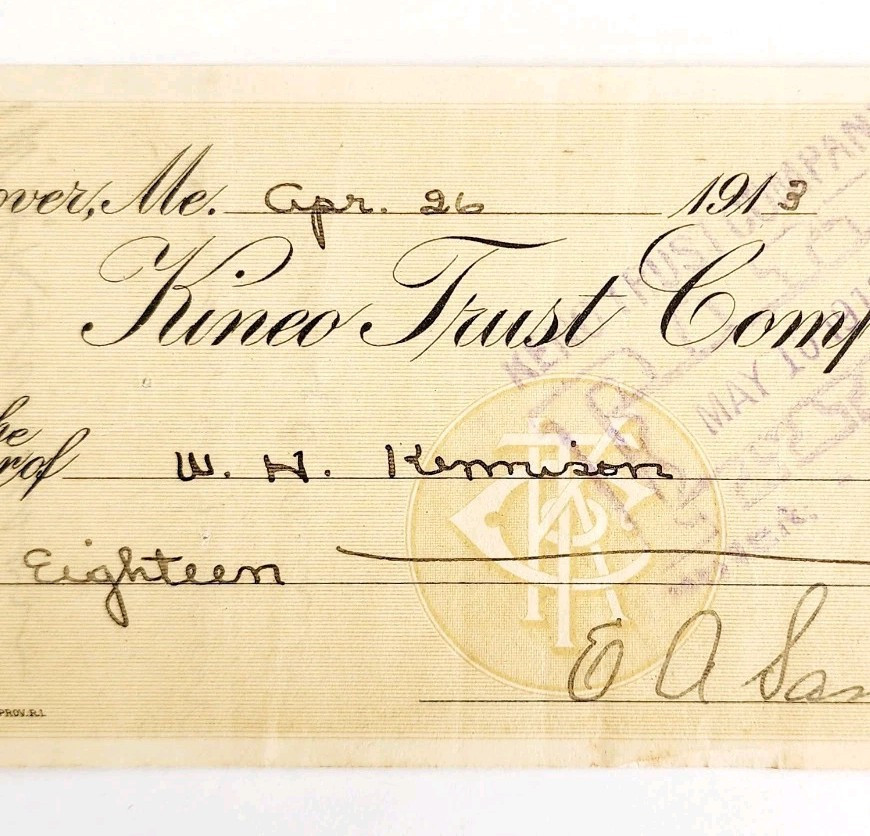 over, Me. Apr. 26 1913
Kineo Trust Comp
he
r of W. H. Kennison
Eighteen
E A San
PROV. R.I.
TRUST COMPANY
MAY 10 191